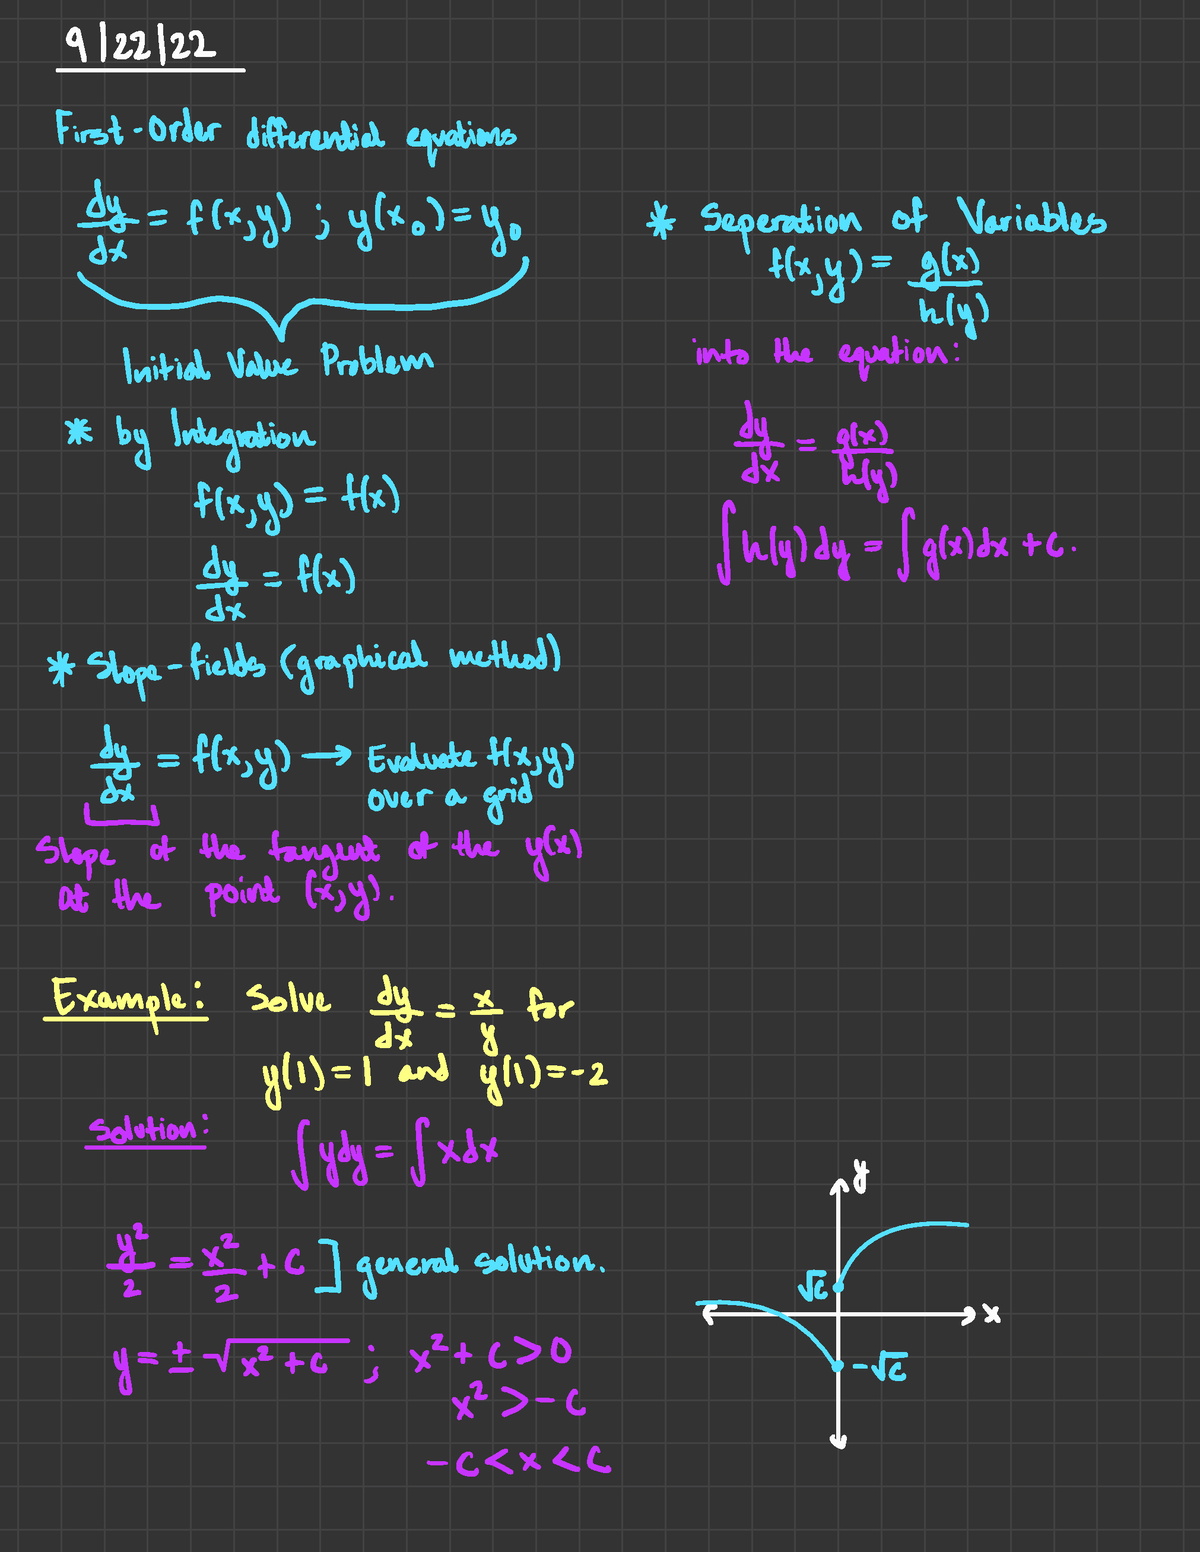 9/22/22
First-Order differential equations
dy/dx = f(x,y) ; y(x₀) = y₀
Initial Value Problem
* by Integration
f(x,y) = f(x)
dy/dx = f(x)
* Slope-fields (graphical method)
dy/dx = f(x,y) → Evaluate f(x,y)
over a grid
Slope of the tangent of the y(x)
at the point (x,y).
* Seperation of Variables
f(x,y) = g(x)/h(y)
into the equation:
dy/dx = g(x)/h(y)
∫h(y)dy = ∫g(x)dx + C.
Example: Solve dy/dx = x/y for
y(1) = 1 and y(1) = -2
Solution: ∫ydy = ∫xdx
y²/2 = x²/2 + C ] general solution.
y = ± √(x² + C) ; x² + C > 0
x² > - C
- C < x < C
y
√C
x
-√C